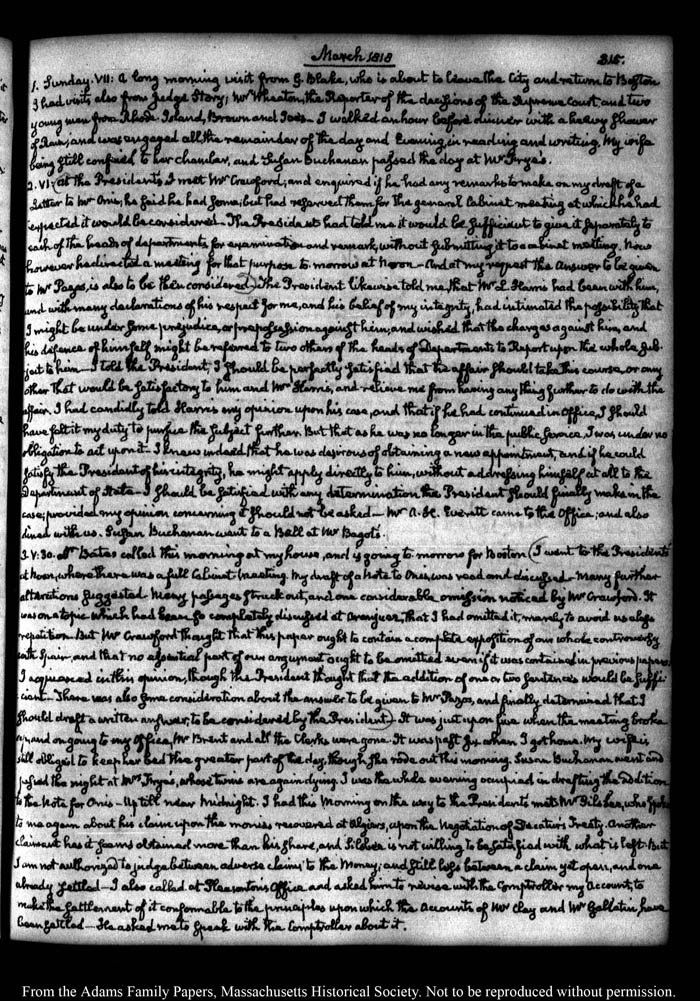 March 1818
315.
1. Sunday. VII: A long morning visit from G. Blake, who is about to leave the City and return to Boston
I had visits also from Judge Story; Mr Wheaton, the Reporter of the decisions of the Supreme Court, and two
young men from Rhode Island, Brown and Ives. I walked an hour before dinner with a heavy shower
of Rain, and was engaged all the remainder of the day and Evening, in reading and writing. My wife
being still confined to her chamber, and Susan Buchanan passed the day at Mr Frye's.
2. VI: At the Presidents I met Mr Crawford; and enquired if he had any remarks to make on my draft of a
Letter to Mr Onis; he said he had some; but had reserved them for the general Cabinet meeting at which he had
expected it would be considered—The President had told me it would be sufficient to give it separately to
each of the heads of departments for examination and remark, without submitting it to a cabinet meeting. Now
however he directed a meeting for that purpose to-morrow at Noon—And at my request the Answer to be given
to Mr Pazos, is also to be then considered. The President likewise told me, that Mr L. Harris had been with him,
and with many declarations of his respect for me, and his belief of my integrity, had intimated the possibility that
I might be under some prejudice, or prepossession against him; and wished that the charges against him, and
his defence of himself might be referred to two others of the heads of Departments to Report upon the whole sub-
ject to him—I told the President, I should be perfectly satisfied that the affair should take this course, or any
other that would be satisfactory to him and Mr Harris, and relieve me from having any thing further to do with the
affair. I had candidly told Harris my opinion upon his case, and that if he had continued in Office, I should
have felt it my duty to pursue the subject further. But that as he was no longer in the public service, I was under no
obligation to act upon it—I knew indeed that he was desirous of obtaining a new appointment, and if he could
satisfy the President of his integrity, he might apply directly to him, without addressing himself at all to the
Department of State—I should be satisfied with any determination the President should finally make in the
case; provided my opinion concerning it should not be asked—Mr A. H. Everett came to the Office; and also
dined with us. Susan Buchanan went to a Ball at Mr Bagot's.
3. V:30. Mr Bates called this morning at my house, and is going to-morrow for Boston. I went to the Presidents
at Noon, where there was a full Cabinet meeting. My draft of a Note to Onis, was read and discussed—Many further
alterations suggested Many passages struck out, and one considerable omission noticed by Mr Crawford. It
was on a topic which had been so completely discussed at Aranjuez, that I had omitted it, merely to avoid useless
repetition. But Mr Crawford thought that this paper ought to contain a complete exposition of our whole controversy
with Spain, and that no essential part of our argument ought to be omitted even if it was contained in previous papers.
I acquiesced in this opinion, though the President thought that the addition of one or two sentences would be suffi-
cient—There was also some consideration about the answer to be given to Mr Pazos, and finally determined that I
should draft a written answer, to be considered by the President. It was just upon five when the meeting broke
up, and on going to my Office, Mr Brent and all the Clerks were gone. It was past six when I got home. My wife is
still obliged to keep her bed the greater part of the day, though she rode out this morning. Susan Buchanan went and
passed the night at Mrs Frye's, whose twins are again dying. I was the whole evening occupied in drafting the addition
to the Note for Onis—Up till near midnight. I had this Morning on the way to the Presidents met Mr who spoke
to me again about his claim upon the monies recovered at Algiers, upon the Negotiation of Decatur's Treaty. Another
claimant has it seems obtained more than his share, and is not willing to be satisfied with what is left. But
I am not authorized to judge between adverse claims to the Money; and still less between a claim yet open, and one
already settled—I also called at Pleasonton's Office and asked him to revise with the Comptroller my Account, to
make the settlement of it conformable to the principles upon which the Accounts of Mr Clay and Mr Gallatin have
been settled—He asked me to speak with the Comptroller about it.
From the Adams Family Papers, Massachusetts Historical Society. Not to be reproduced without permission.